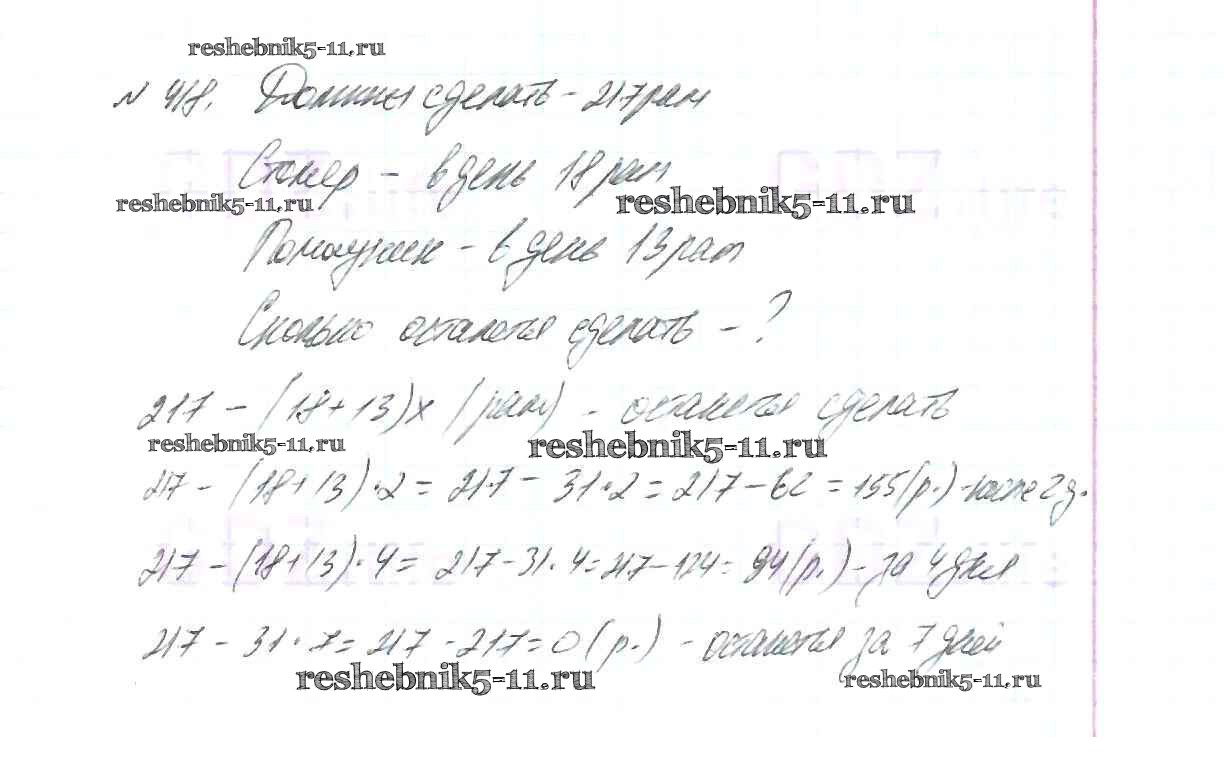 reshebnik5-11.ru
№ 418. Должны сделать - 217 рам
Столер - в день 18 рам
reshebnik5-11.ru reshebnik5-11.ru
Помощник - в день 13 рам
Сколько останется сделать - ?
217 - (18+13)x (рам) - останется сделать
reshebnik5-11.ru reshebnik5-11.ru
217 - (18+13)·2 = 217 - 31·2 = 217-62 = 155(р.) - после 2 д.
217 - (18+13)·4 = 217-31·4=217-124= 94(р.) - за 4 дня
217 - 31·7= 217 - 217=0 (р.) - останется за 7 дней
reshebnik5-11.ru reshebnik5-11.ru